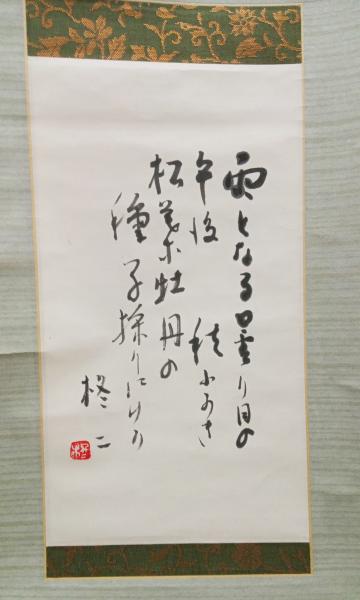 雨となる曇り日の
午後
松葉牡丹の
種子採りにけり
柊二